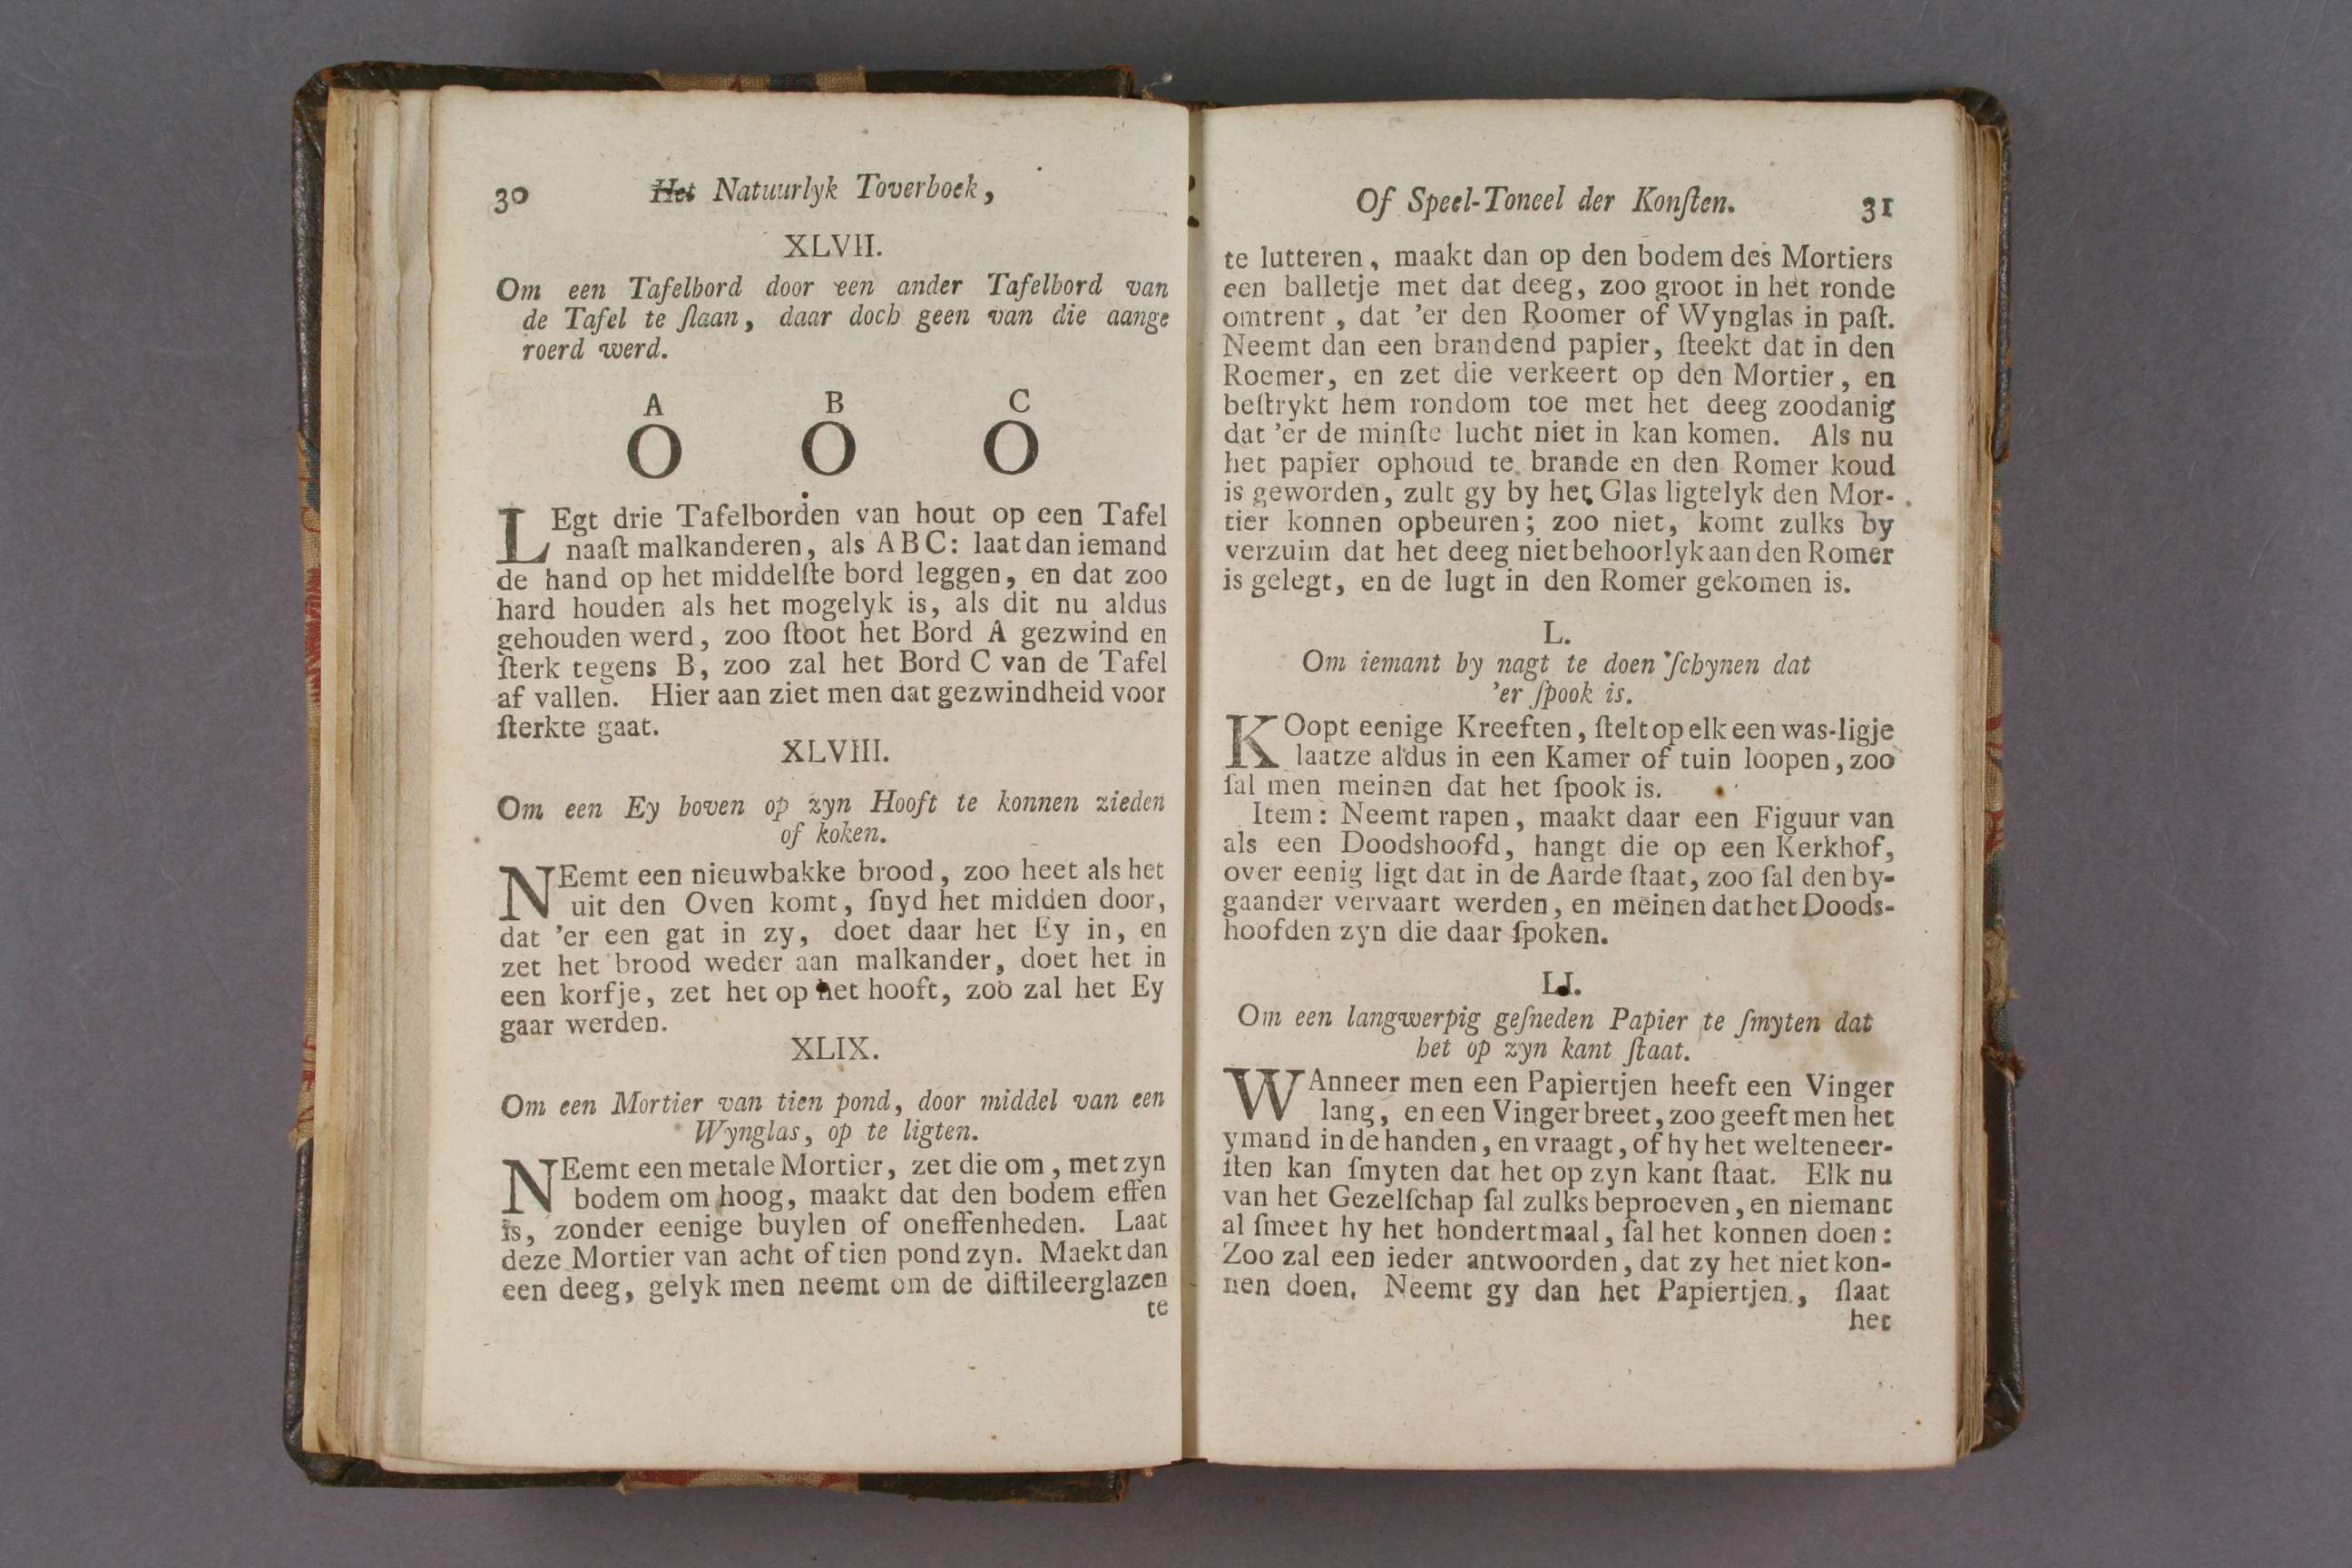 30 Het Natuurlyk Toverboek,
XLVII.
Om een Tafelbord door een ander Tafelbord van
de Tafel te ſlaan, daar doch geen van die aange
roerd werd.
A B C
O O O
LEgt drie Tafelborden van hout op een Tafel
naaſt malkanderen, als A B C: laat dan iemand
de hand op het middelſte bord leggen, en dat zoo
hard houden als het mogelyk is, als dit nu aldus
gehouden werd, zoo ſtoot het Bord A gezwind en
ſterk tegens B, zoo zal het Bord C van de Tafel
af vallen. Hier aan ziet men dat gezwindheid voor
ſterkte gaat.
XLVIII.
Om een Ey boven op zyn Hooft te konnen zieden
of koken.
NEemt een nieuwbakke brood, zoo heet als het
uit den Oven komt, ſnyd het midden door,
dat 'er een gat in zy, doet daar het Ey in, en
zet het brood weder aan malkander, doet het in
een korfje, zet het op het hooft, zoo zal het Ey
gaar werden.
XLIX.
Om een Mortier van tien pond, door middel van een
Wynglas, op te ligten.
NEemt een metale Mortier, zet die om, met zyn
bodem om hoog, maakt dat den bodem effen
is, zonder eenige buylen of oneffenheden. Laat
deze Mortier van acht of tien pond zyn. Maekt dan
een deeg, gelyk men neemt om de diſtileerglazen
te
Of Speel-Toneel der Konſten. 31
te lutteren, maakt dan op den bodem des Mortiers
een balletje met dat deeg, zoo groot in het ronde
omtrent, dat 'er den Roomer of Wynglas in paſt.
Neemt dan een brandend papier, ſteekt dat in den
Roemer, en zet die verkeert op den Mortier, en
beſtrykt hem rondom toe met het deeg zoodanig
dat 'er de minſte lucht niet in kan komen. Als nu
het papier ophoud te brande en den Romer koud
is geworden, zult gy by het Glas ligtelyk den Mor-
tier konnen opbeuren; zoo niet, komt zulks by
verzuim dat het deeg niet behoorlyk aan den Romer
is gelegt, en de lugt in den Romer gekomen is.
L.
Om iemant by nagt te doen ſchynen dat
'er ſpook is.
KOopt eenige Kreeften, ſtelt op elk een was-ligje
laatze aldus in een Kamer of tuin loopen, zoo
ſal men meinen dat het ſpook is.
Item: Neemt rapen, maakt daar een Figuur van
als een Doodshoofd, hangt die op een Kerkhof,
over eenig ligt dat in de Aarde ſtaat, zoo ſal den by-
gaander vervaart werden, en meinen dat het Doods-
hoofden zyn die daar ſpoken.
LI.
Om een langwerpig geſneden Papier te ſmyten dat
het op zyn kant ſtaat.
WAnneer men een Papiertjen heeft een Vinger
lang, en een Vinger breet, zoo geeft men het
ymand in de handen, en vraagt, of hy het welteneer-
ſten kan ſmyten dat het op zyn kant ſtaat. Elk nu
van het Gezelſchap ſal zulks beproeven, en niemant
al ſmeet hy het hondertmaal, ſal het konnen doen:
Zoo zal een ieder antwoorden, dat zy het niet kon-
nen doen. Neemt gy dan het Papiertjen, ſlaat
het